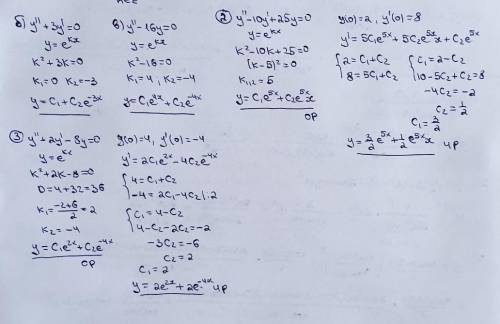 б) y''+3y'=0
y=e^kx
k²+3k=0
k₁=0 k₂=-3
y=C₁+C₂e^-3x
в) y''-16y=0
y=e^kx
k²-16=0
k₁=4, k₂=-4
y=C₁e^4x+C₂e^-4x
② y''-10y'+25y=0
y=e^kx
k²-10k+25=0
(k-5)²=0
k₁,₂=5
y=C₁e^5x+C₂e^5x x
ор
y(0)=2, y'(0)=8
y'=5C₁e^5x+5C₂e^5x x+C₂e^5x
{2=C₁+C₂ {C₁=2-C₂
8=5C₁+C₂ 10-5C₂+C₂=8
-4C₂=-2
C₂=1/2
C₁=3/2
y=3/2 e^5x+1/2 e^5x x чр
③ y''+2y'-8y=0
y=e^kx
k²+2k-8=0
D=4+32=36
k₁=(-2+6)/2=2
k₂=-4
y=C₁e^2x+C₂e^-4x
ор
y(0)=4, y'(0)=-4
y'=2C₁e^2x-4C₂e^-4x
{4=C₁+C₂
-4=2C₁-4C₂ |:2
{C₁=4-C₂
4-C₂-2C₂=-2
-3C₂=-6
C₂=2
C₁=2
y=2e^2x+2e^-4x чр